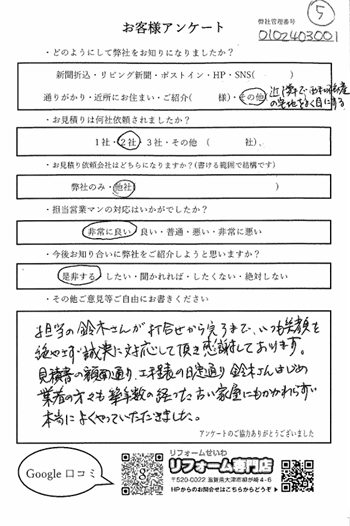 お客様アンケート
弊社管理番号
⑤
0102403001
・どのようにして弊社をお知りになりましたか?
新聞折込・リビング新聞・ポストイン・HP・SNS( )
通りがかり・近所にお住まい・ご紹介( 様)・その他(
・お見積りは何社依頼されましたか?
1社・2社・3社・その他 ( 社)、
・お見積り依頼会社はどちらになりますか?(書ける範囲で結構です)
弊社のみ・他社(
・担当営業マンの対応はいかがでしたか?
非常に良い・良い・普通・悪い・非常に悪い
・今後お知り合いに弊社をご紹介しようと思いますか?
是非する・したい・聞かれれば・したくない・絶対しない
・その他ご意見等ご自由にお書きください
担当の鈴木さんが打合せから完了まで、いつも笑顔を
絶やさず誠実に対応して頂き感謝しております。
見積書の額面通り、工程表の日定通り鈴木さんはじめ
業者の方々も築年数の経った古い家屋にもかかわらず
本当によくやっていただきました。
アンケートのご協力ありがとうございました
Google口コミ
リフォームせいわ
リフォーム専門店
〒520-0022 滋賀県大津市柳が崎4-6
HPからのお問合せはこちらからどうぞ